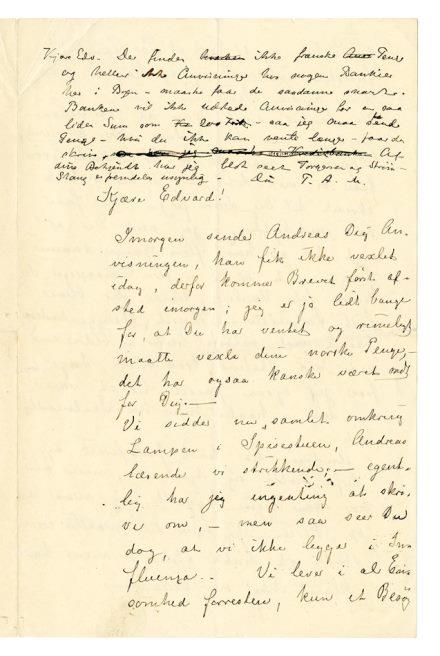 Kjære Edv. Der findes ikke franske Penge
og heller ikke Anvisninger hos nogen Bankier
her i Byen – maaske faar de saadanne snart.
Banken vil ikke udstede Anvisninger for en saa
liden Sum som – saa jeg maa sende
Penge – naar du ikke kan vente længe – faar du
skrive.
din har jeg blot seet Torgersen og
Stang er fremdeles usynlig – Din T. A. M.
Kjære Edvard!
Imorgen sender Andreas Dig An-
visningen, han fik ikke vexlet
idag, derfor kommer Brevet först af-
sted imorgen; jeg er jo lidt bange
for, at Du har ventet og rimeligt
maatte vexle dine norske Penge, –
det har ogsaa kanske været nok
for Dig. –
Vi sidder nu samlet omkring
Lampen i Spisestuen, Andreas
læsende vi strikkende; – egent-
lig har jeg ingenting at skri-
ve om, – men saa seer Du
dog, at vi ikke ligger i Inn
fluenza.. Vi lever i al Ein
somhed forresten, kun et Besög